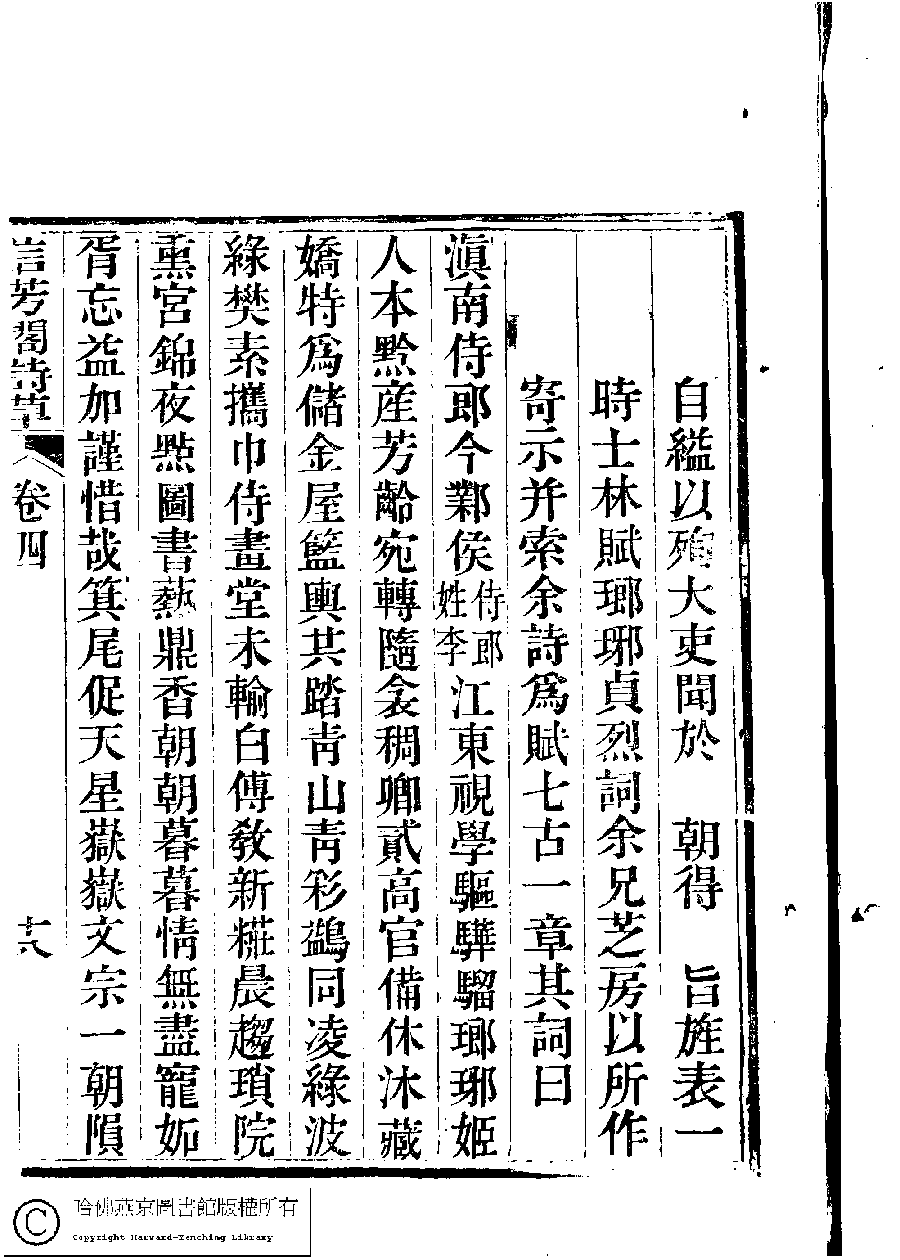 自縊以殉大吏聞於　朝得　旨旌表一
時士林賦瑯琊貞烈詞余兄芝房以所作
寄示并索余詩爲賦七古一章其詞曰
滇南侍郎今鄴侯侍郎姓李江東視學驅驊騮瑯琊姬
人本黔産芳齡宛轉隨衾裯卿貳高官備休沐藏
嬌特爲儲金屋籃輿共踏靑山靑彩鷁同凌綠波
綠樊素攜巾侍畫堂未輸白傅敎新糚晨趨瑣院
熏宮錦夜㸃圖書爇鼎香朝朝暮暮情無盡寵妬
胥忘益加謹惜哉箕尾促天星嶽嶽文宗一朝隕
言芳閣詩草
卷四
十八
哈佛燕京圖書館版權所有
Copyright Harvard-Yenching Library